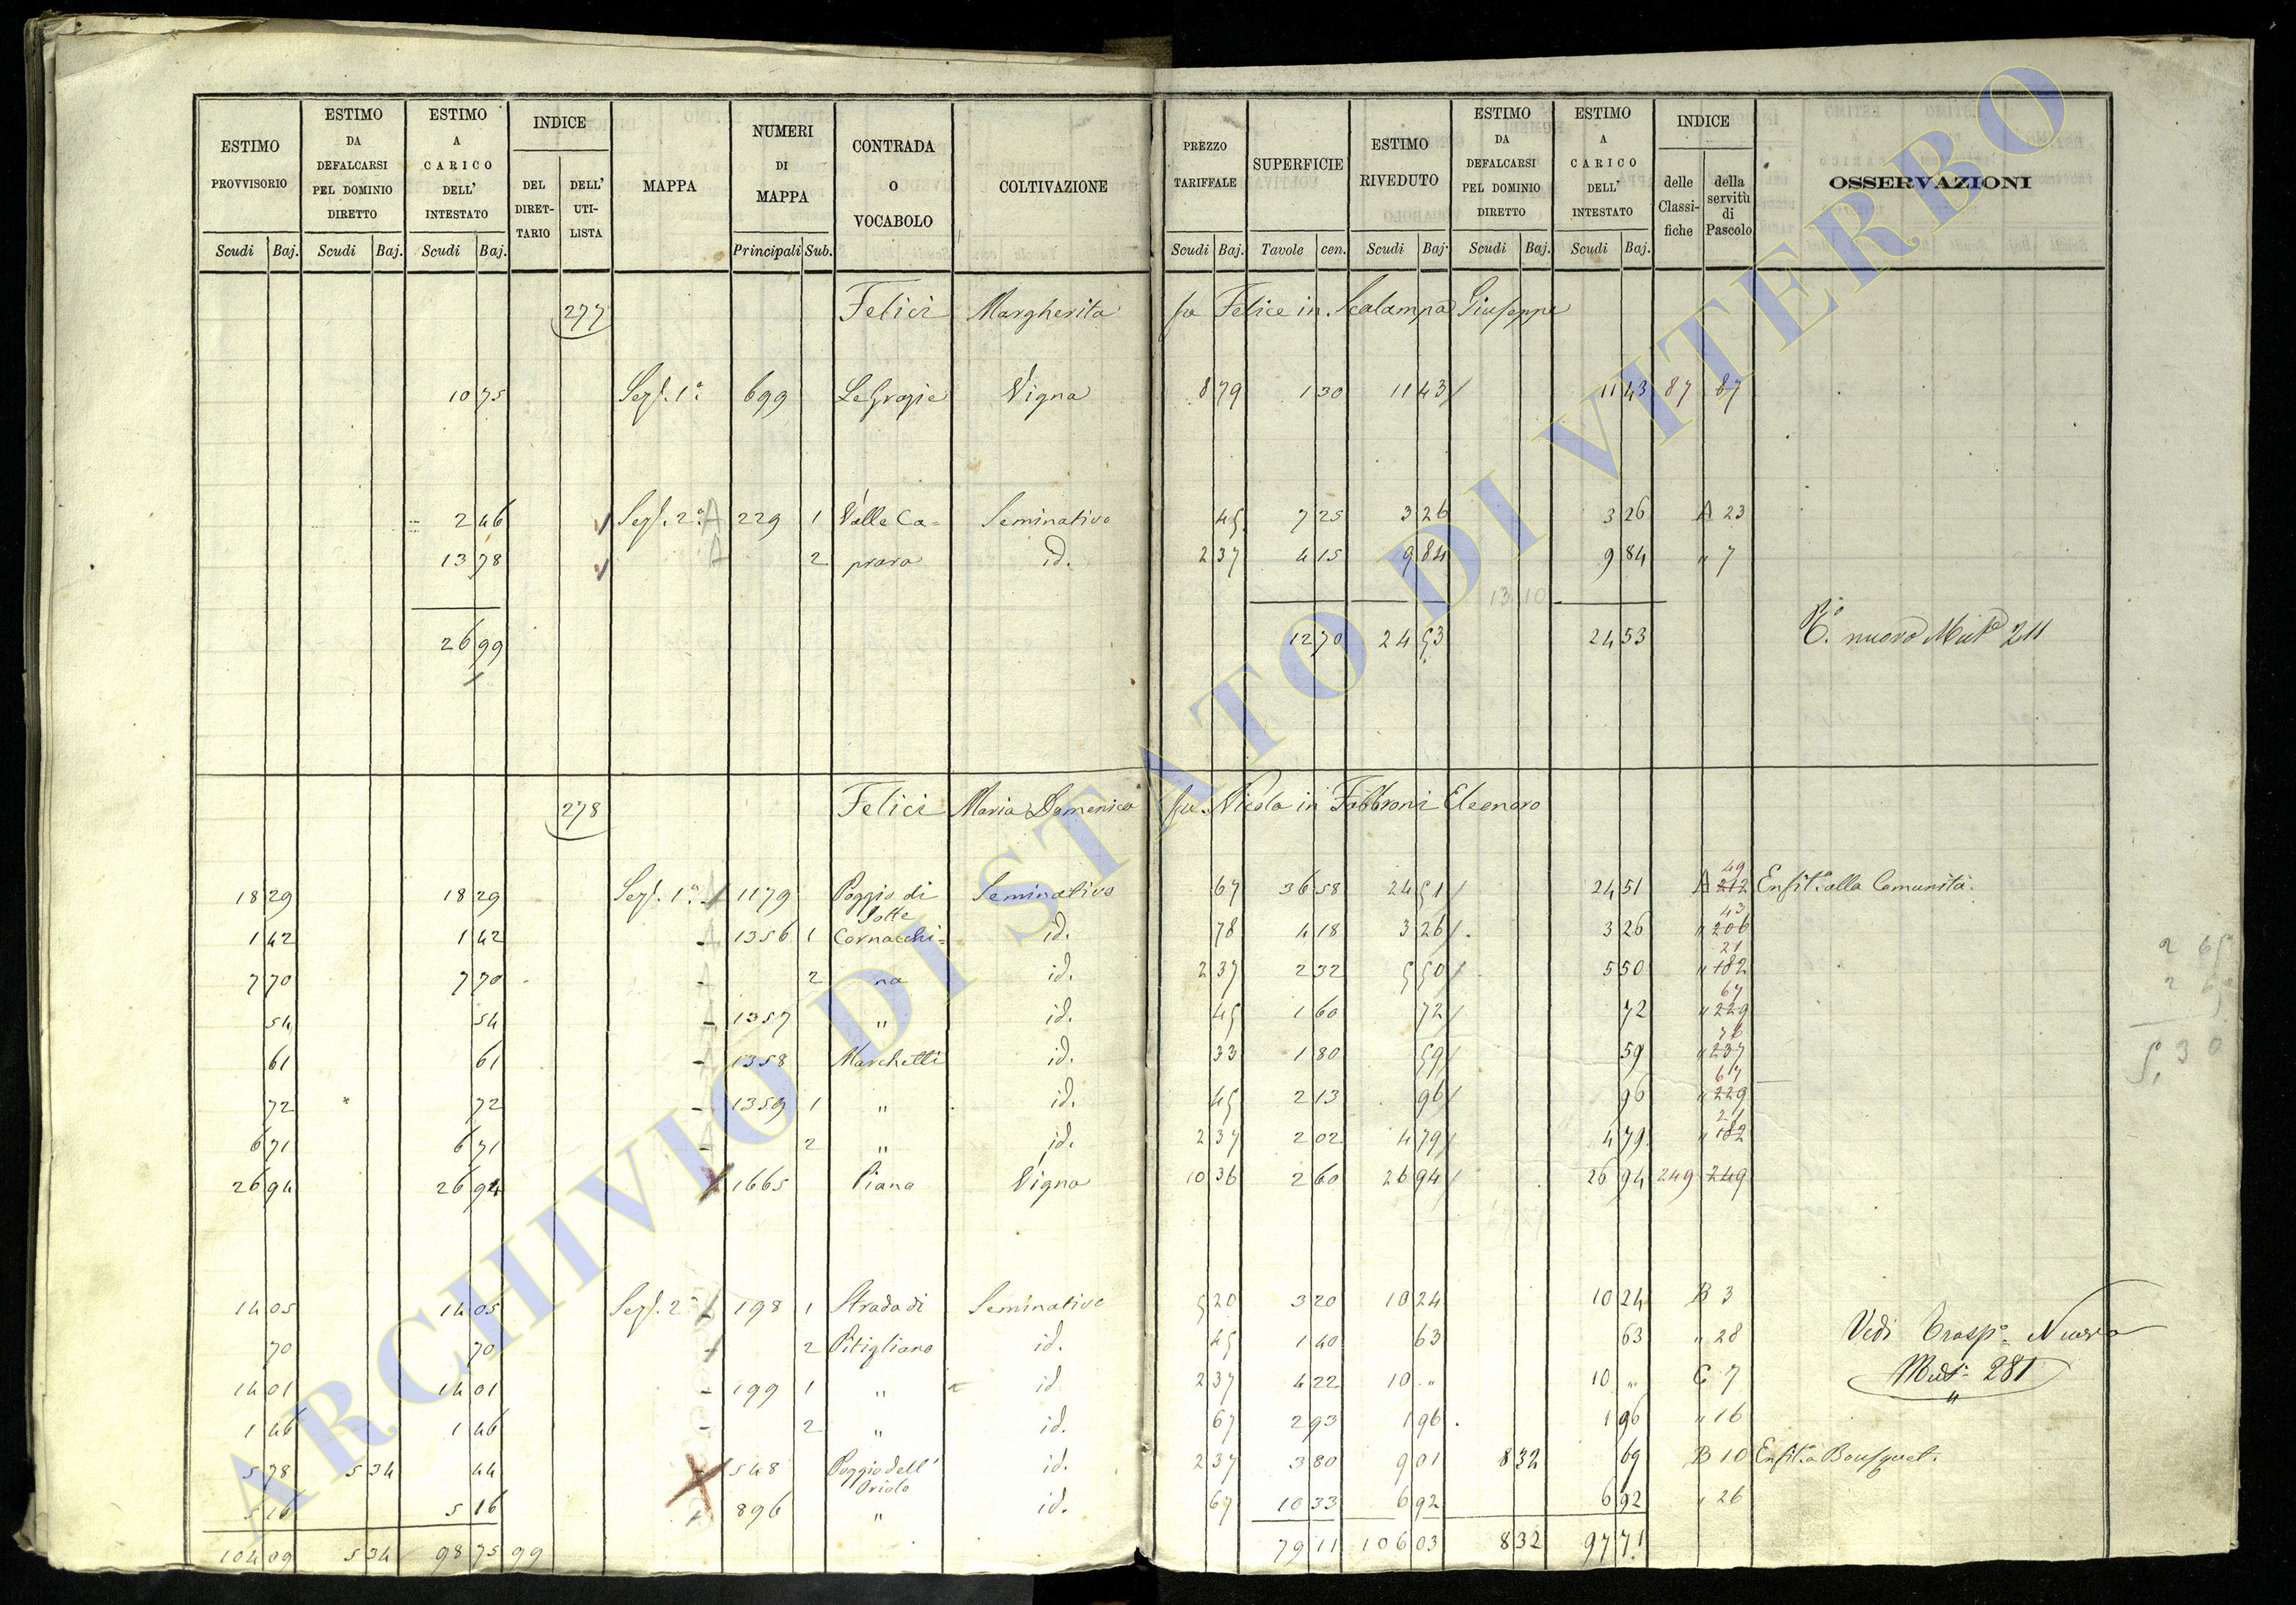 ESTIMO PROVVISORIO | ESTIMO DA DEFALCARSI PEL DOMINIO DIRETTO | ESTIMO A CARICO DELL' INTESTATO | INDICE | MAPPA | NUMERI DI MAPPA | CONTRADA O VOCABOLO | COLTIVAZIONE | PREZZO TARIFFALE | SUPERFICIE | ESTIMO RIVEDUTO | ESTIMO DA DEFALCARSI PEL DOMINIO DIRETTO | ESTIMO A CARICO DELL' INTESTATO | INDICE | OSSERVAZIONI
DEL DIRET-TARIO | DELL' UTI-LISTA | delle Classi-fiche | della servitù di Pascolo
Scudi | Baj. | Scudi | Baj. | Scudi | Baj. | Principali | Sub. | Scudi | Baj. | Tavole | cen. | Scudi | Baj. | Scudi | Baj. | Scudi | Baj.
277 Felici Margherita fu Felice in Scalampa Giuseppe
10 75 Sez. 1a 699 Le Grazie Vigna 8 79 1 30 11 43 11 43 87 87
2 46 Sez. 2a A 229 1 Valle Ca= Seminativo 45 7 25 3 26 3 26 A 23
13 78 A 2 prara id. 2 37 4 15 9 84 9 84 " 7
13 10
26 99 12 70 24 53 24 53 nuovo 211
278 Felici Maria Domenica fu Nicola in Fabbroni Eleonoro
18 29 18 29 Sez. 1a 1179 Poggio di Sotto Seminativo 67 36 58 24 51 24 51 A 212 49 Enfita. alla Comunità.
1 42 1 42 1356 1 Cornacchi= id. 78 4 18 3 26 3 26 " 206 43
7 70 7 70 2 na id. 2 37 2 32 5 50 5 50 " 182 21
54 54 1357 " id. 45 1 60 72 72 " 229 67
61 61 1358 Marchetti id. 33 1 80 59 59 " 237
72 72 1359 1 " id. 45 2 13 96 96 " 229 67
6 71 6 71 2 " id. 2 37 2 02 4 79 4 79 " 182 21
26 94 26 94 1665 Piana Vigna 10 36 2 60 26 94 26 94 249 249
14 05 14 05 Sez. 2a 198 1 Strada di Seminativo 3 20 3 20 10 24 10 24 B 3
70 70 2 Pitigliano id. 45 1 40 63 63 " 28 Vedi Trasp. Nuovo
14 01 14 01 199 1 " id 2 37 4 22 10 " 10 " C 7 Mut. 281
1 46 1 46 2 " id. 67 2 93 1 96 1 96 " 16
5 78 5 34 44 548 Poggio dell' Oriolo id. 2 37 3 80 9 01 8 32 69 B 10 Enfit. a Bousquet.
5 16 5 16 896 " id. 67 10 33 6 92 6 92 " 26
104 09 5 34 98 75 99 79 11 106 03 8 32 97 71
2 65
2 65
5,30
ARCHIVIO DI STATO DI VITERBO